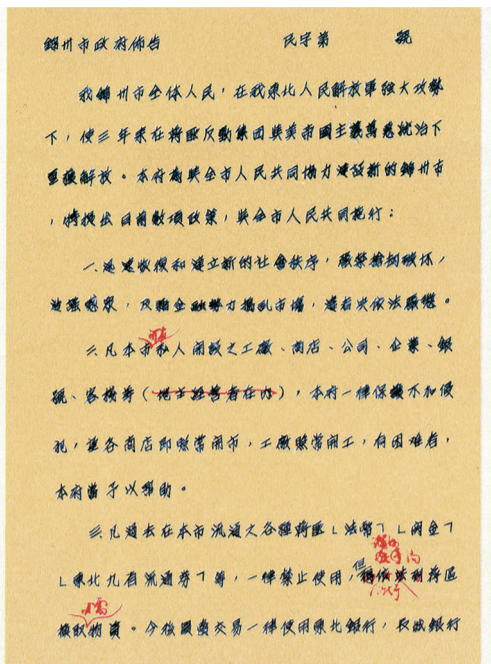 錦州市政府佈告　民字第　號
我錦州市全体人民，在我東北人民解放軍强大攻勢
下，使三年來在蔣匪反動集團與美帝國主義萬惡統治下
重獲解放。本府為與全市人民共同協力建設新的錦州市
，特提出目前數項政策，與全市人民共同施行：
一、迅速恢復和建立新的社會秩序，嚴禁搶刼破坏，
造謠惑眾，及 金融勢力搗乱市場，違者決依法嚴懲。
二、凡本市私人開設之工廠、商店、公司、企業、銀
號、客棧等（地主經營者在内），本府一律保護不加侵
犯，並各商店即照常開市，工廠照常開工，有困难者，
本府當予以帮助。
三、凡過去在本市流通之各種蔣匪「法幣」「関金」
「東北九省流通券」等，一律禁止使用，但 蔣區
換取物資。今後買賣交易一律使用東北銀行，長城銀行